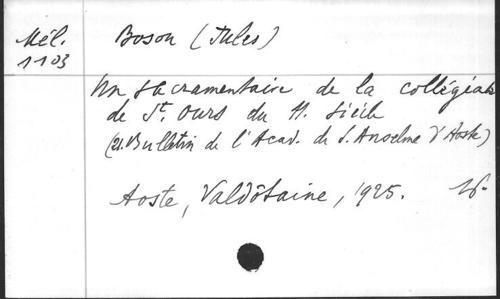 Mél.
1103
Boson (Jules)
Un sacramentaire de la collégiale
de St. Ours du 11. siècle
(21. Bulletin de l'Acad. de S. Anselme d'Aoste)
Aoste, Valdôtaine, 1925.